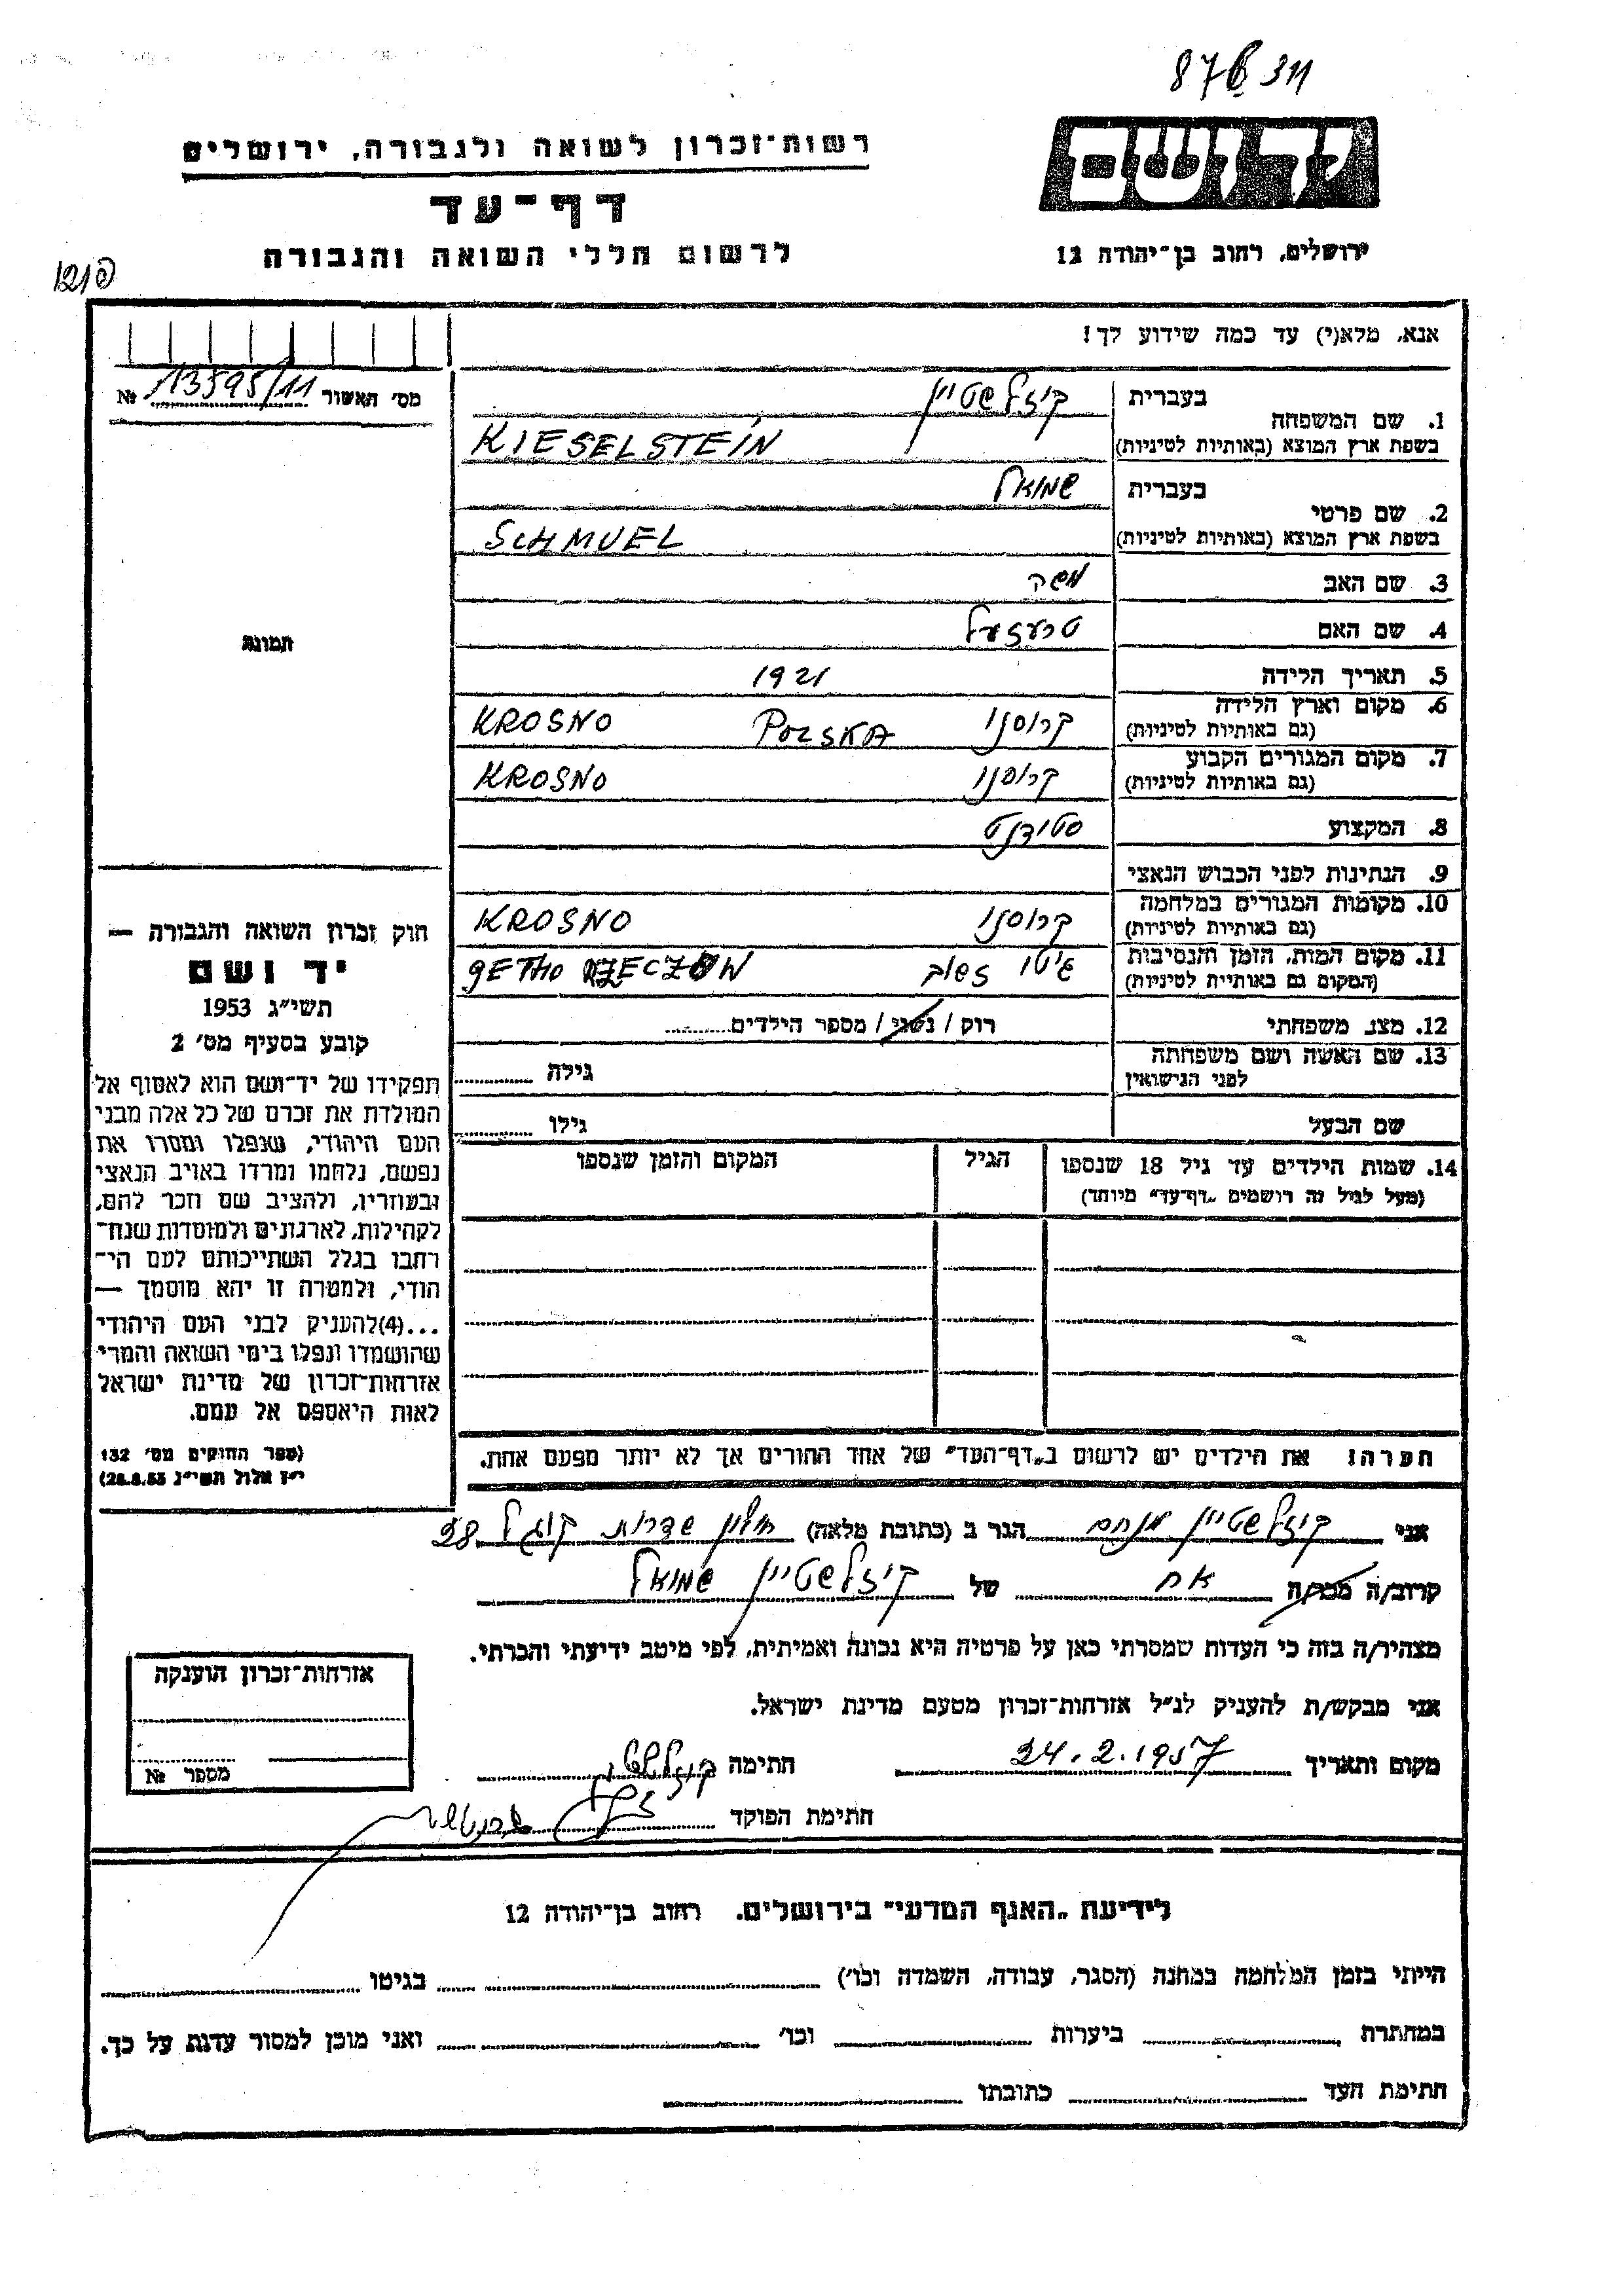 רשות־זכרון לשואה ולגבורה, ירושלים
דף־עד
לרשום חללי השואה והגבורה
ידושם
ירושלים, רחוב בן־יהודה 12
אנא, מלא(י) עד כמה שידוע לך!
מס' האשור 13595/11 №
תמונה
1. שם המשפחה
בעברית קיזלשטיין
בשפת ארץ המוצא (באותיות לטיניות) KIESELSTEIN
2. שם פרטי
בעברית שמואל
בשפת ארץ המוצא (באותיות לטיניות) SCHMUEL
3. שם האב משה
4. שם האם
5. תאריך הלידה 1921
6. מקום וארץ הלידה קרוסנו POLSKA KROSNO
(גם באותיות לטיניות)
7. מקום המגורים הקבוע קרוסנו KROSNO
(גם באותיות לטיניות)
8. המקצוע סטודנט
9. הנתינות לפני הכבוש הנאצי
10. מקומות המגורים במלחמה קרוסנו KROSNO
(גם באותיות לטיניות)
11. מקום המות, הזמן והנסיבות גיטו GETHO
(המקום גם באותיית לטיניות)
12. מצב משפחתי רוק / נשוי / מספר הילדים
13. שם האשה ושם משפחתה גילה
לפני הנישואין
שם הבעל גילו
14. שמות הילדים עד גיל 18 שנספו הגיל המקום והזמן שנספו
(מעל לגיל זה רושמים „דף־עד״ מיוחד)
חוק זכרון השואה והגבורה —
יד ושם
תשי״ג 1953
קובע בסעיף מס' 2
תפקידו של יד־ושם הוא לאסוף אל
המולדת את זכרם של כל אלה מבני
העם היהודי, שנפלו ומסרו את
נפשם, נלחמו ומרדו באויב הנאצי
ובעוזריו, ולהציב שם וזכר להם,
לקהילות, לארגונים ולמוסדות שנח־
רחבו בגלל השתייכותם לעם הי־
הודי, ולמטרה זו יהא מוסמך —
...(4)להעניק לבני העם היהודי
שהושמדו ונפלו בימי השואה והמרי
אזרחות־זכרון של מדינת ישראל
לאות היאספם אל עמם.
(ספר החוקים מס' 132
י״ז אלול תשי״ג 28.8.53)
הערה! את הילדים יש לרשום ב„דף־העד״ של אחד ההורים אך לא יותר מפעם אחת.
אני קיזלשטיין מנחם הגר ב (כתובת מלאה) חולון שדרות קוגל 28
קרוב/ה מכר/ה אח של קיזלשטיין שמואל
מצהיר/ה בזה כי העדות שמסרתי כאן על פרטיה היא נכונה ואמיתית, לפי מיטב ידיעתי והכרתי.
אני מבקש/ת להעניק לנ״ל אזרחות־זכרון מטעם מדינת ישראל.
מקום ותאריך 24.2.1957 חתימה
חתימת הפוקד
אזרחות־זכרון הוענקה
מספר №
לידיעת „האגף המדעי״ בירושלים, רחוב בן־יהודה 12
הייתי בזמן המלחמה במחנה (הסגר, עבודה, השמדה וכו') בגיטו
במחתרת ביערות וכו' ואני מוכן למסור עדות על כך.
חתימת העד כתובתו